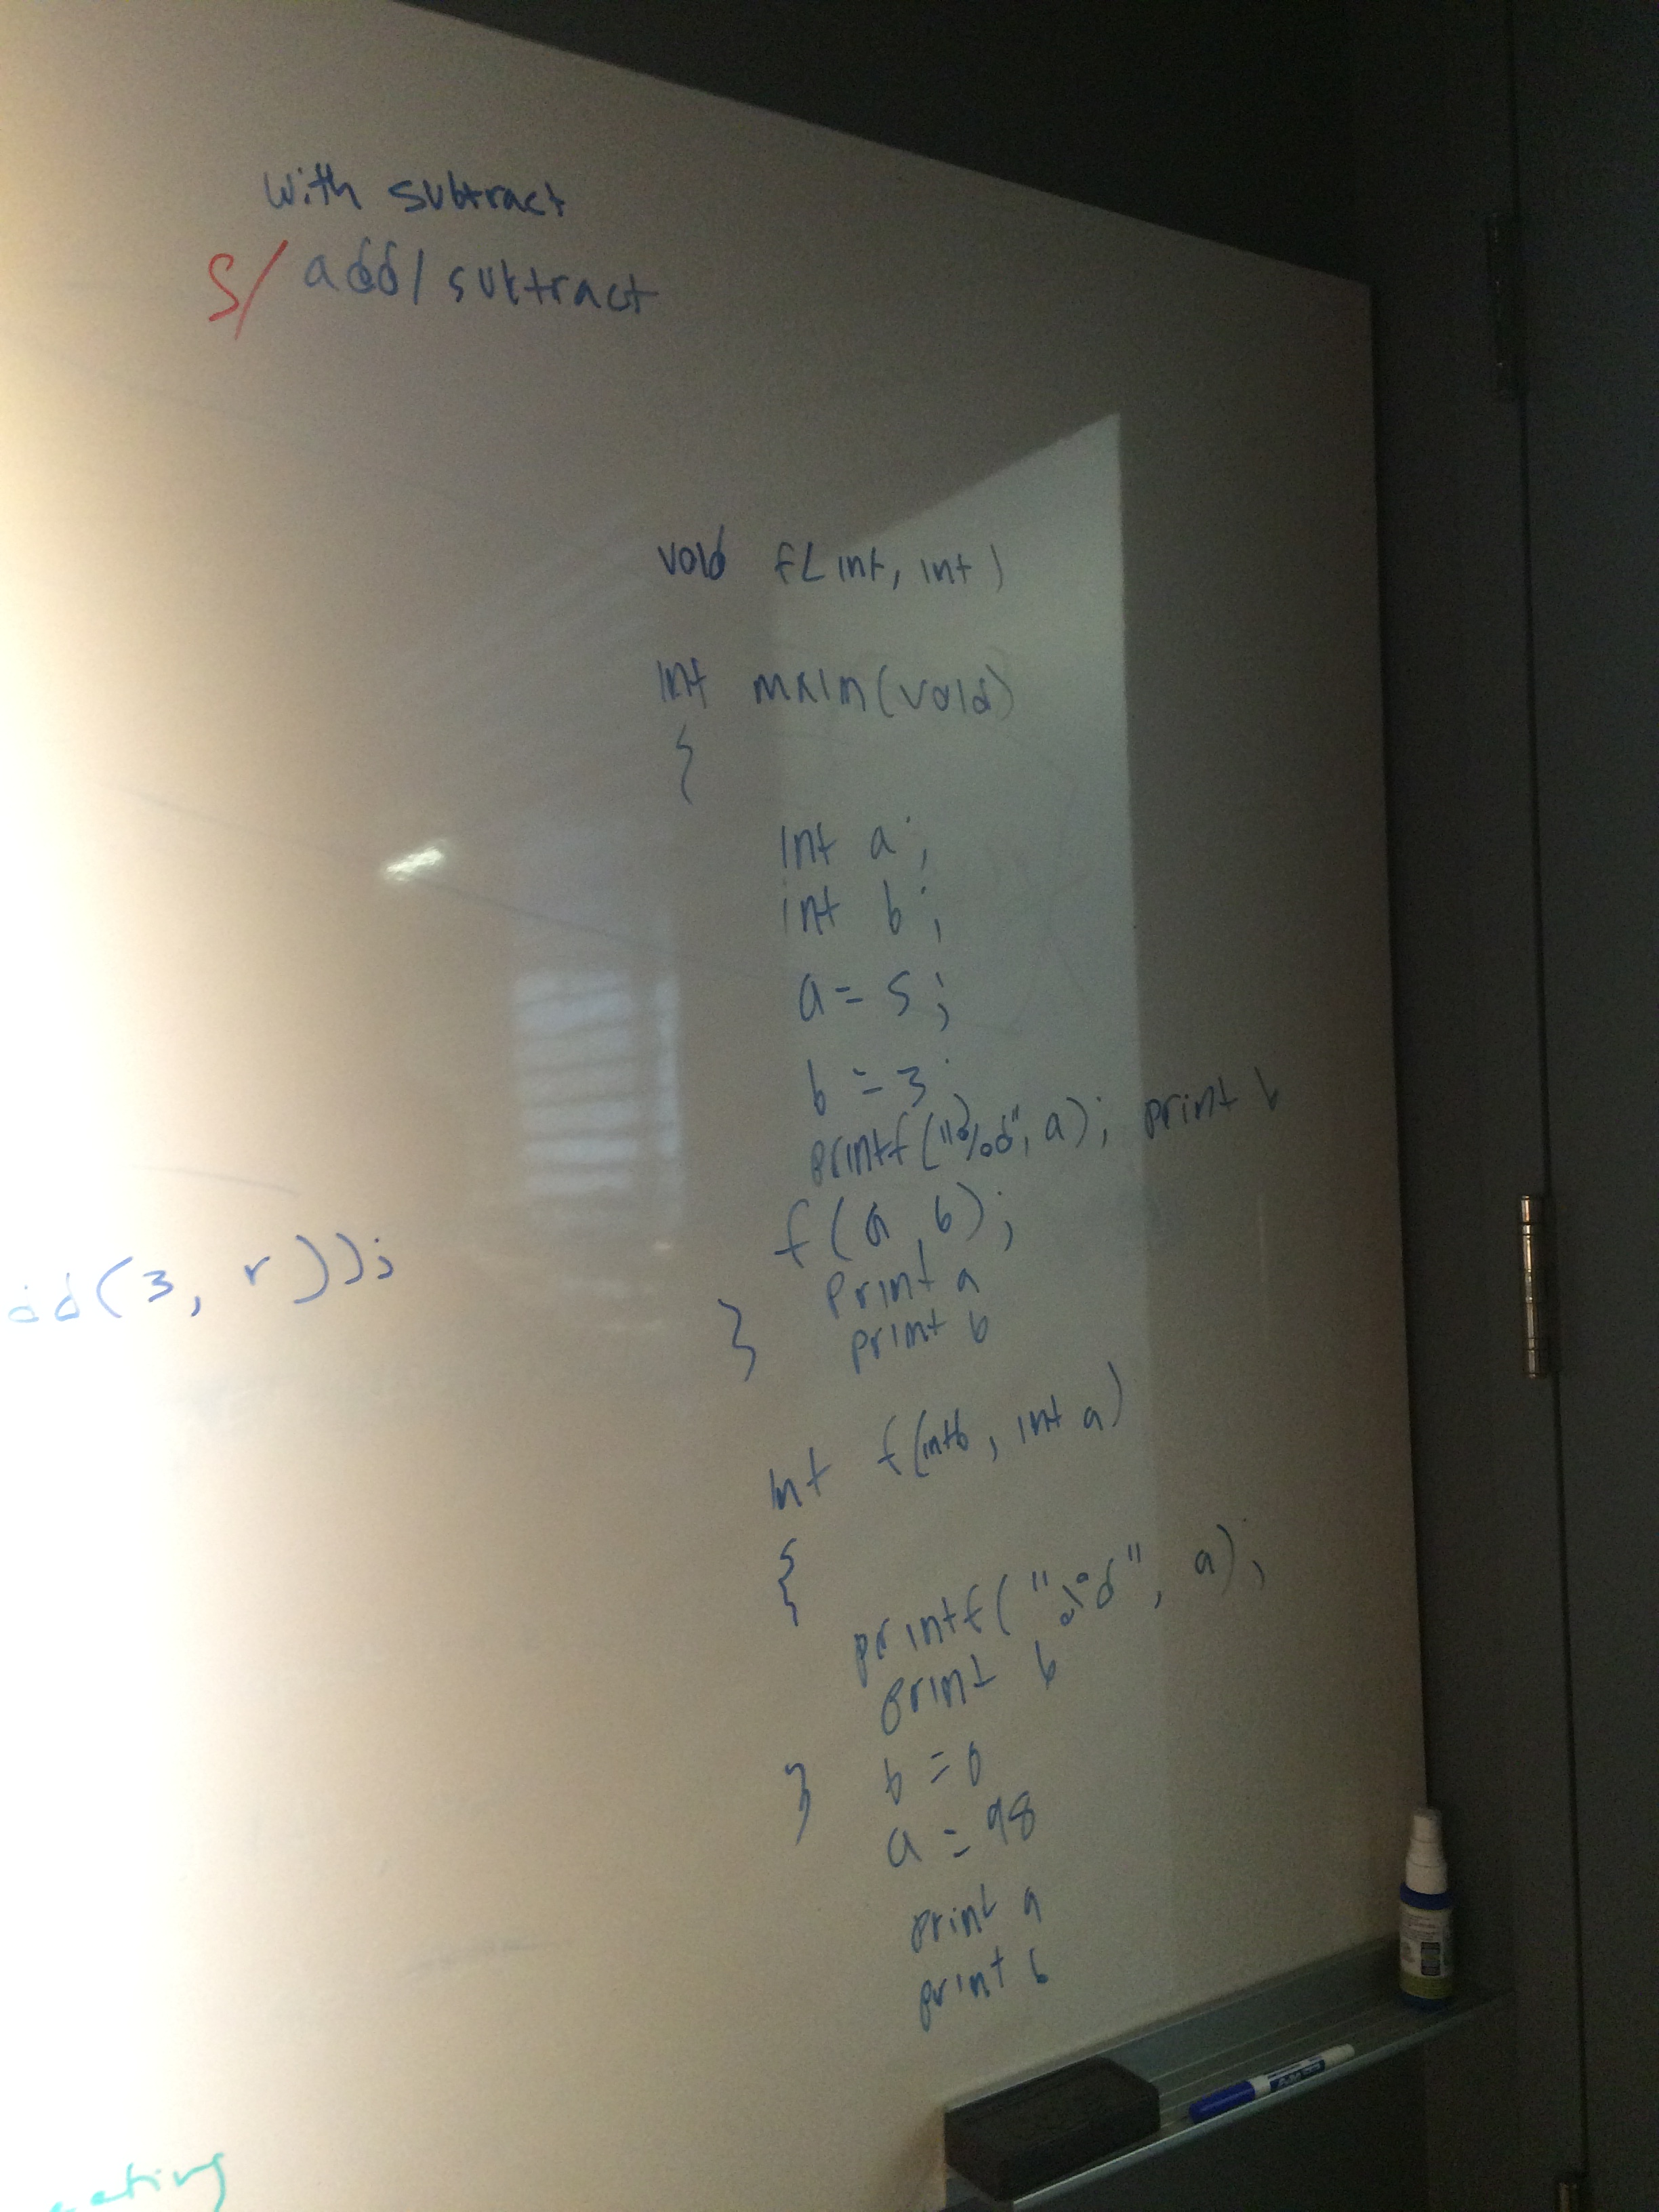 with subtract
S/ add/subtract
void f(int, int)
int main(void)
{
int a;
int b;
a = 5;
b = 3;
printf("%d", a); print b
f(a, b);
dd(3, r));
print a
} print b
int f(int b, int a)
{
printf("%d", a);
print b
} b = 0
a = 98
print a
print b